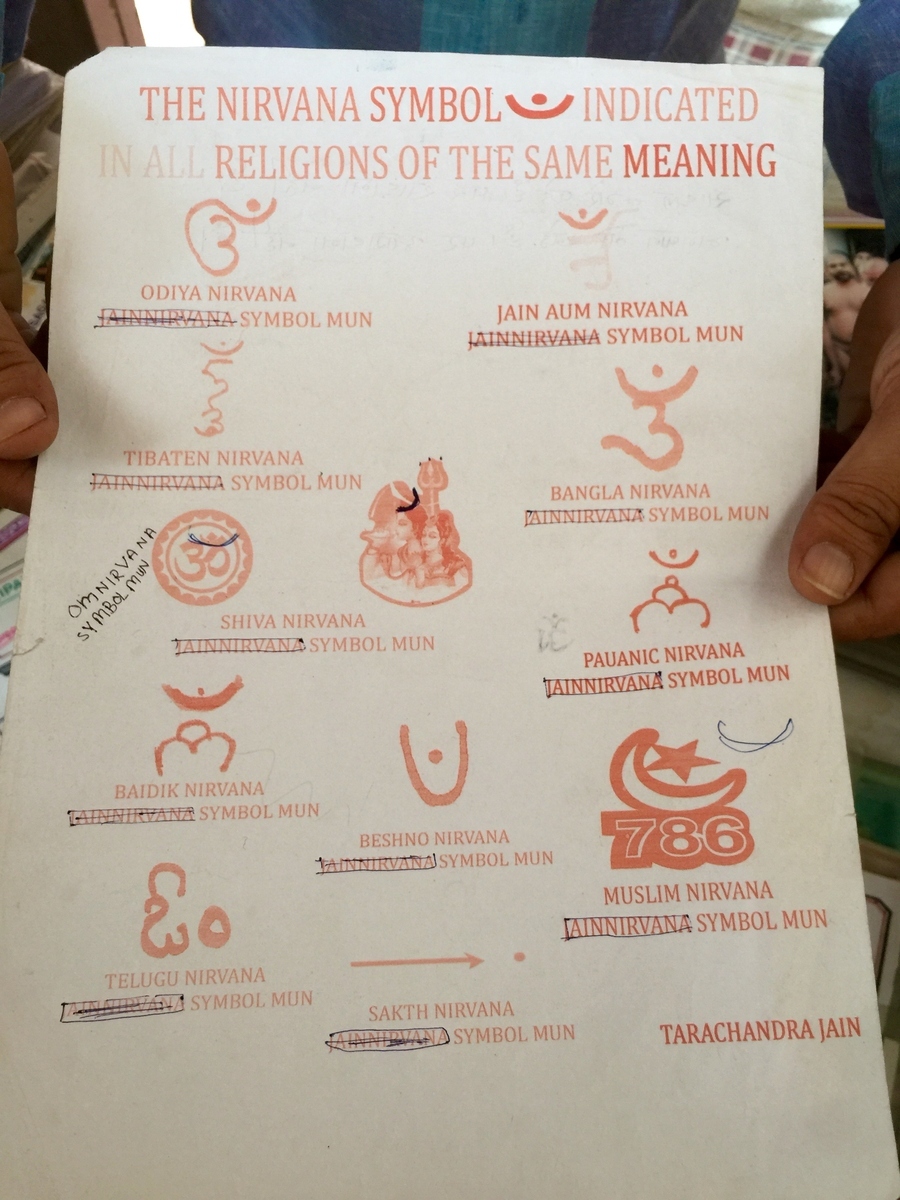 THE NIRVANA SYMBOL INDICATED
IN ALL RELIGIONS OF THE SAME MEANING
ODIYA NIRVANA
JAINNIRVANA SYMBOL MUN
JAIN AUM NIRVANA
JAINNIRVANA SYMBOL MUN
TIBATEN NIRVANA
JAINNIRVANA SYMBOL MUN
BANGLA NIRVANA
JAINNIRVANA SYMBOL MUN
ॐ
OMNIRVANA
SYMBOL MUN
SHIVA NIRVANA
JAINNIRVANA SYMBOL MUN
PAUANIC NIRVANA
JAINNIRVANA SYMBOL MUN
BAIDIK NIRVANA
JAINNIRVANA SYMBOL MUN
BESHNO NIRVANA
JAINNIRVANA SYMBOL MUN
786
MUSLIM NIRVANA
JAINNIRVANA SYMBOL MUN
ఓం
TELUGU NIRVANA
JAINNIRVANA SYMBOL MUN
SAKTH NIRVANA
JAINNIRVANA SYMBOL MUN
TARACHANDRA JAIN